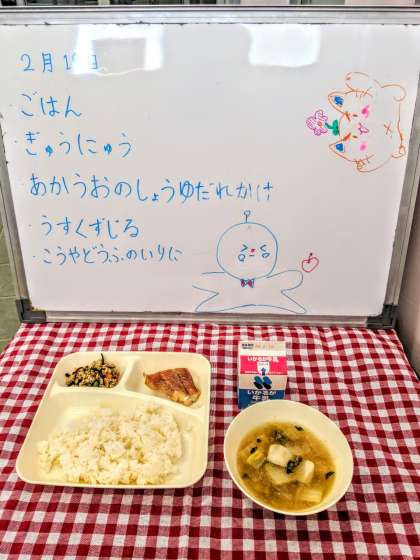 2月19日
ごはん
・ぎゅうにゅう
あかうおのしょうゆだれかけ
・うすくずじる
・こうやどうふのいりに
いかるが牛乳
いかるが
牛乳